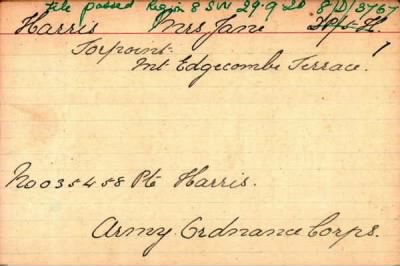 File passed Region 8 SW 29.9.20 8/D/3767
Harris Mrs Jane
Torpoint.
Mt Edgecombe Terrace.
No 035458 Pte Harris.
Army Ordnance Corps.